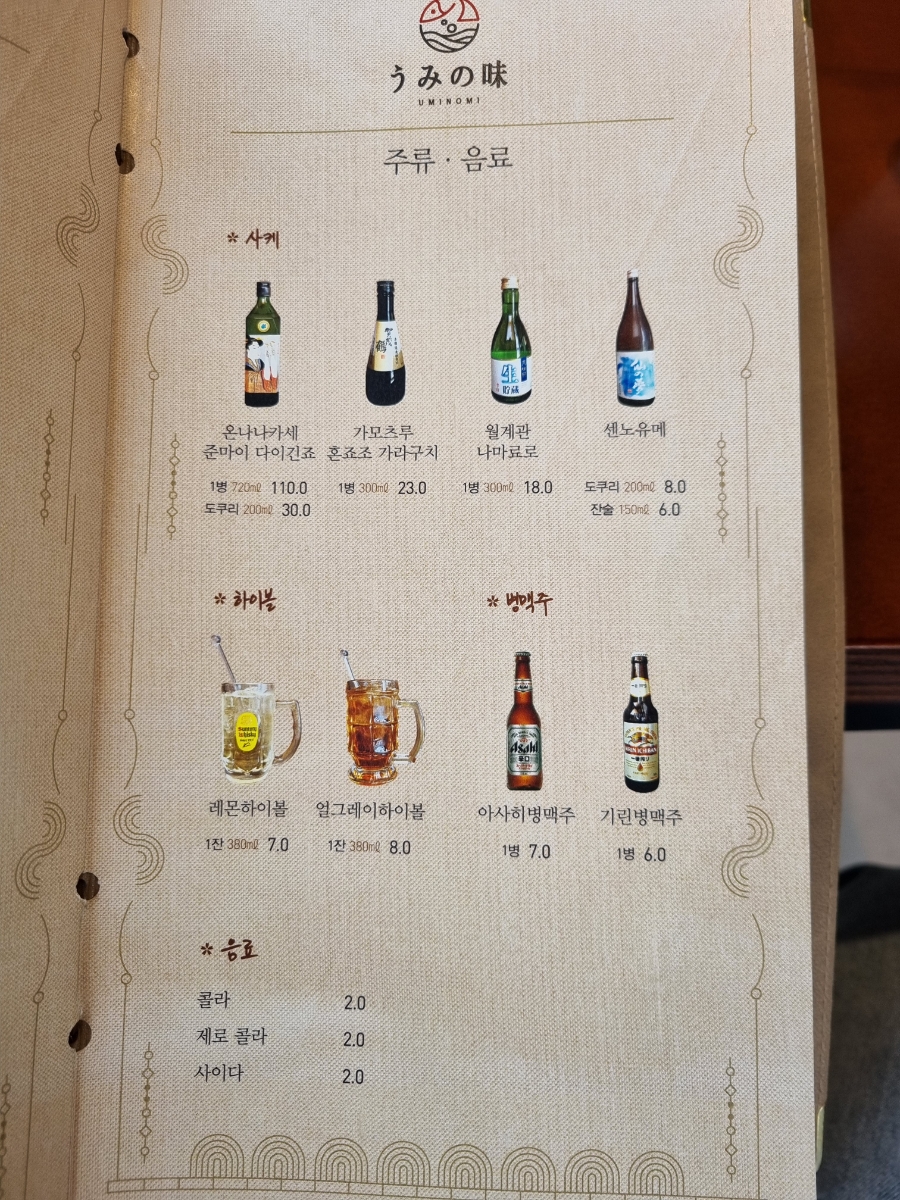 うみの味
UMINOMI
주류 · 음료
* 사케
온나나카세
준마이 다이긴죠
1병 720㎖ 110.0
도쿠리 200㎖ 30.0
가모츠루
혼죠조 가라구치
1병 300㎖ 23.0
월계관
나마쵸로
1병 300㎖ 18.0
센노유메
도쿠리 200㎖ 8.0
잔술 150㎖ 6.0
* 하이볼
레몬하이볼
1잔 380㎖ 7.0
얼그레이하이볼
1잔 380㎖ 8.0
* 병맥주
Asahi
아사히병맥주
1병 7.0
기린병맥주
1병 6.0
* 음료
콜라 2.0
제로 콜라 2.0
사이다 2.0